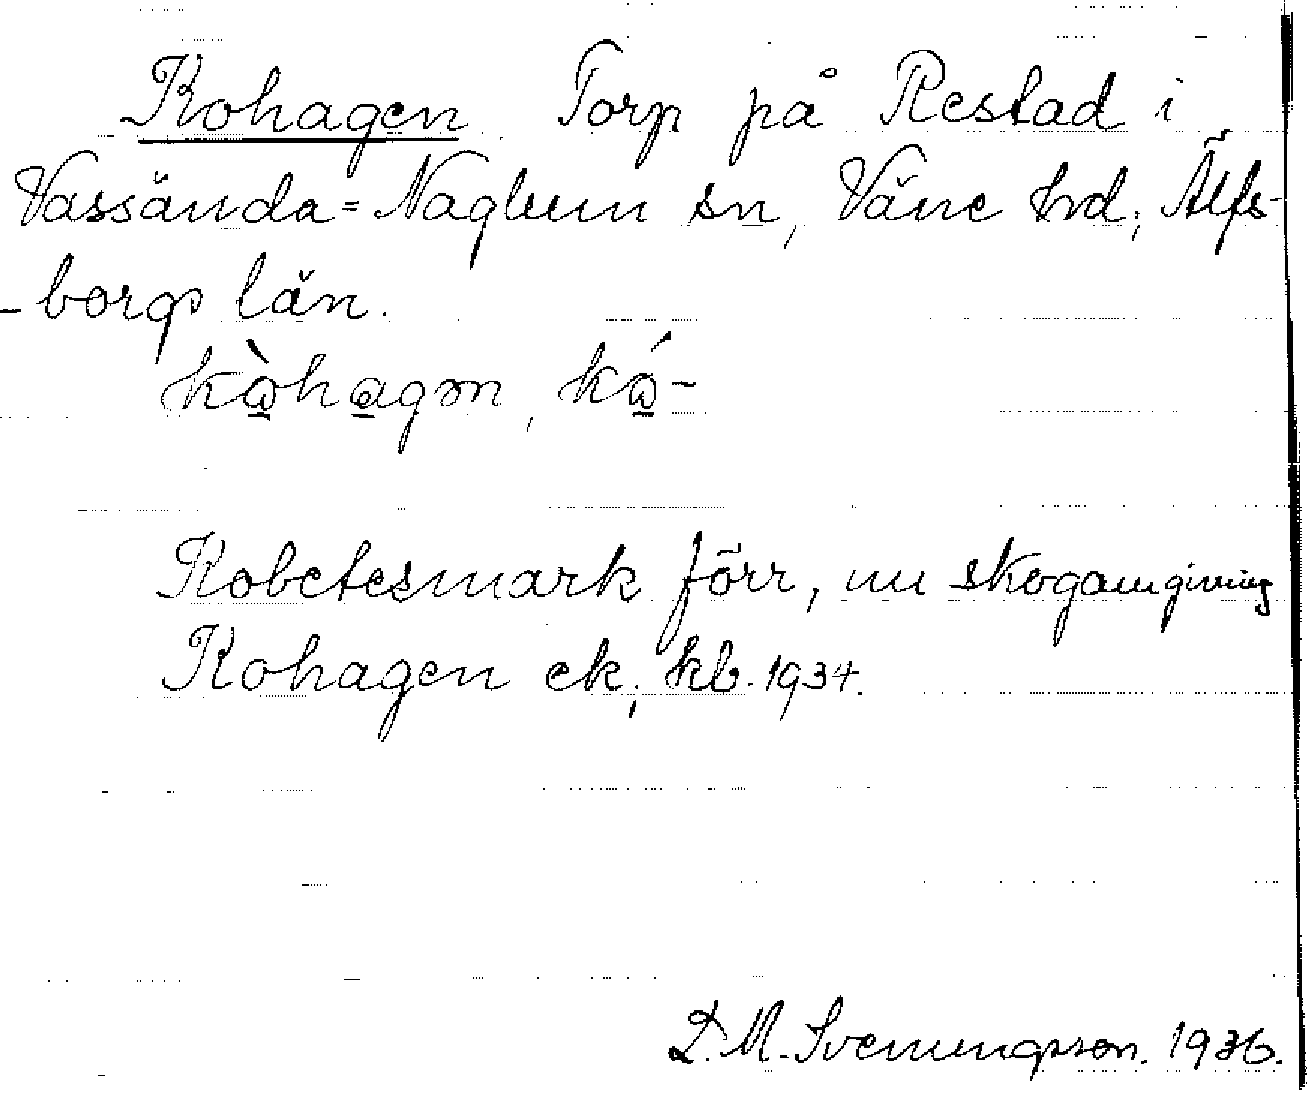 Kohagen Torp på Restad i
Vassända=Naglum sn, Väne hd, Älfs-
-borgs län.
kὼhagən, kώ-
Kobetesmark förr, nu skogomgivning
Kohagen ek, kb. 1934.
D. M. Svenungsson. 1936.